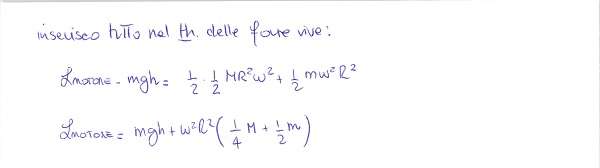 inserisco tutto nel th. delle forze vive:
L_MOTORE - mgh = 1/2 · 1/2 MR²ω² + 1/2 mω²R²
L_MOTORE = mgh + ω²R² (1/4 M + 1/2 m)